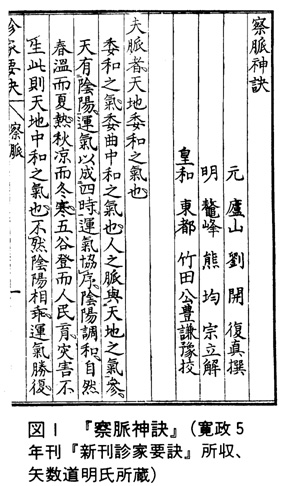 察脈神訣
元 廬山 劉開 復真 撰
明 鼇峰 熊均 宗立 解
皇和 東都 竹田公豊謙豫校
夫脈者天地委和之氣也
委和之氣委曲中和之氣也人之脈與天地之氣參
天有陰陽運氣以成四時運氣協序陰陽調和自然
春温而夏熱秋凉而冬寒五谷登而人民育灾害不
生此則天地中和之氣也不然陰陽相乖運氣勝復
診家要決 察脈 一
図1 『察脈神訣』(寛政5
年刊『新刊診家要訣』所収、
矢数道明氏所蔵)